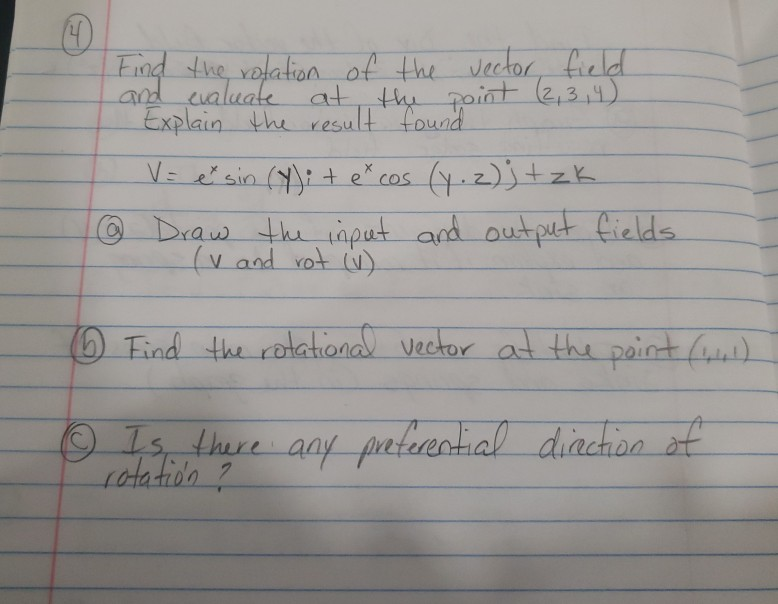 4
Find the rotation of the vector field
and evaluate at the point (2,3,4)
Explain the result found
V = e^x sin (y)i + e^x cos (y.z)j + zk
a Draw the input and output fields
(v and rot (v)
b Find the rotational vector at the point (1,1,1)
c Is there any preferential direction of
rotation?